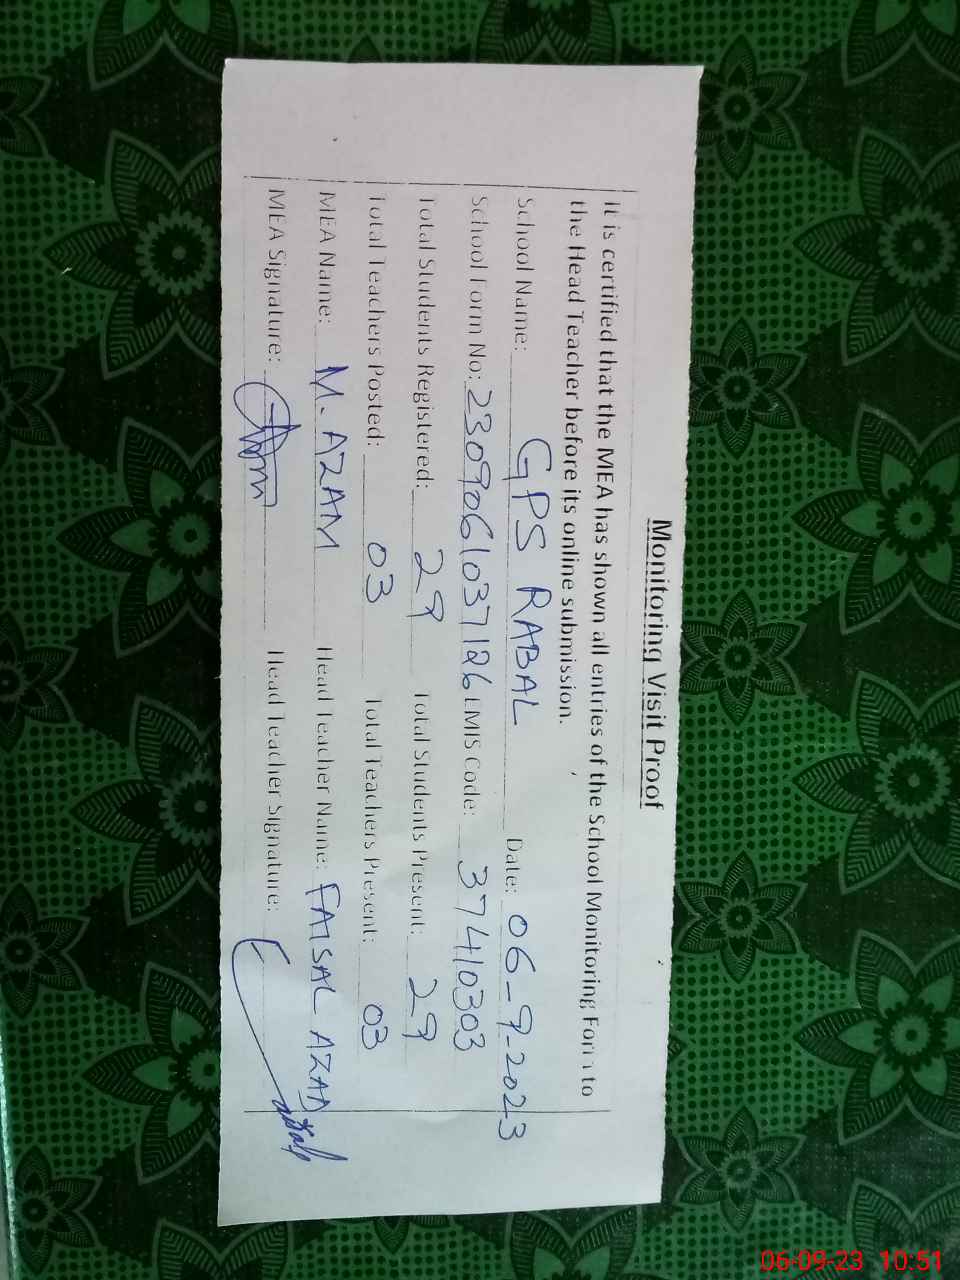 Monitoring Visit Proof
It is certified that the MEA has shown all entries of the School Monitoring Form to
the Head Teacher before its online submission.
School Name: GPS RABAL Date: 06-9-2023
School Form No: 2309061037126 EMIS Code: 37410303
Total Students Registered: 29 Total Students Present: 29
Total Teachers Posted: 03 Total Teachers Present: 03
MEA Name: M. AZAM Head Teacher Name: FAISAL AZAD
MEA Signature: Head Teacher Signature:
06-09-23 10:51